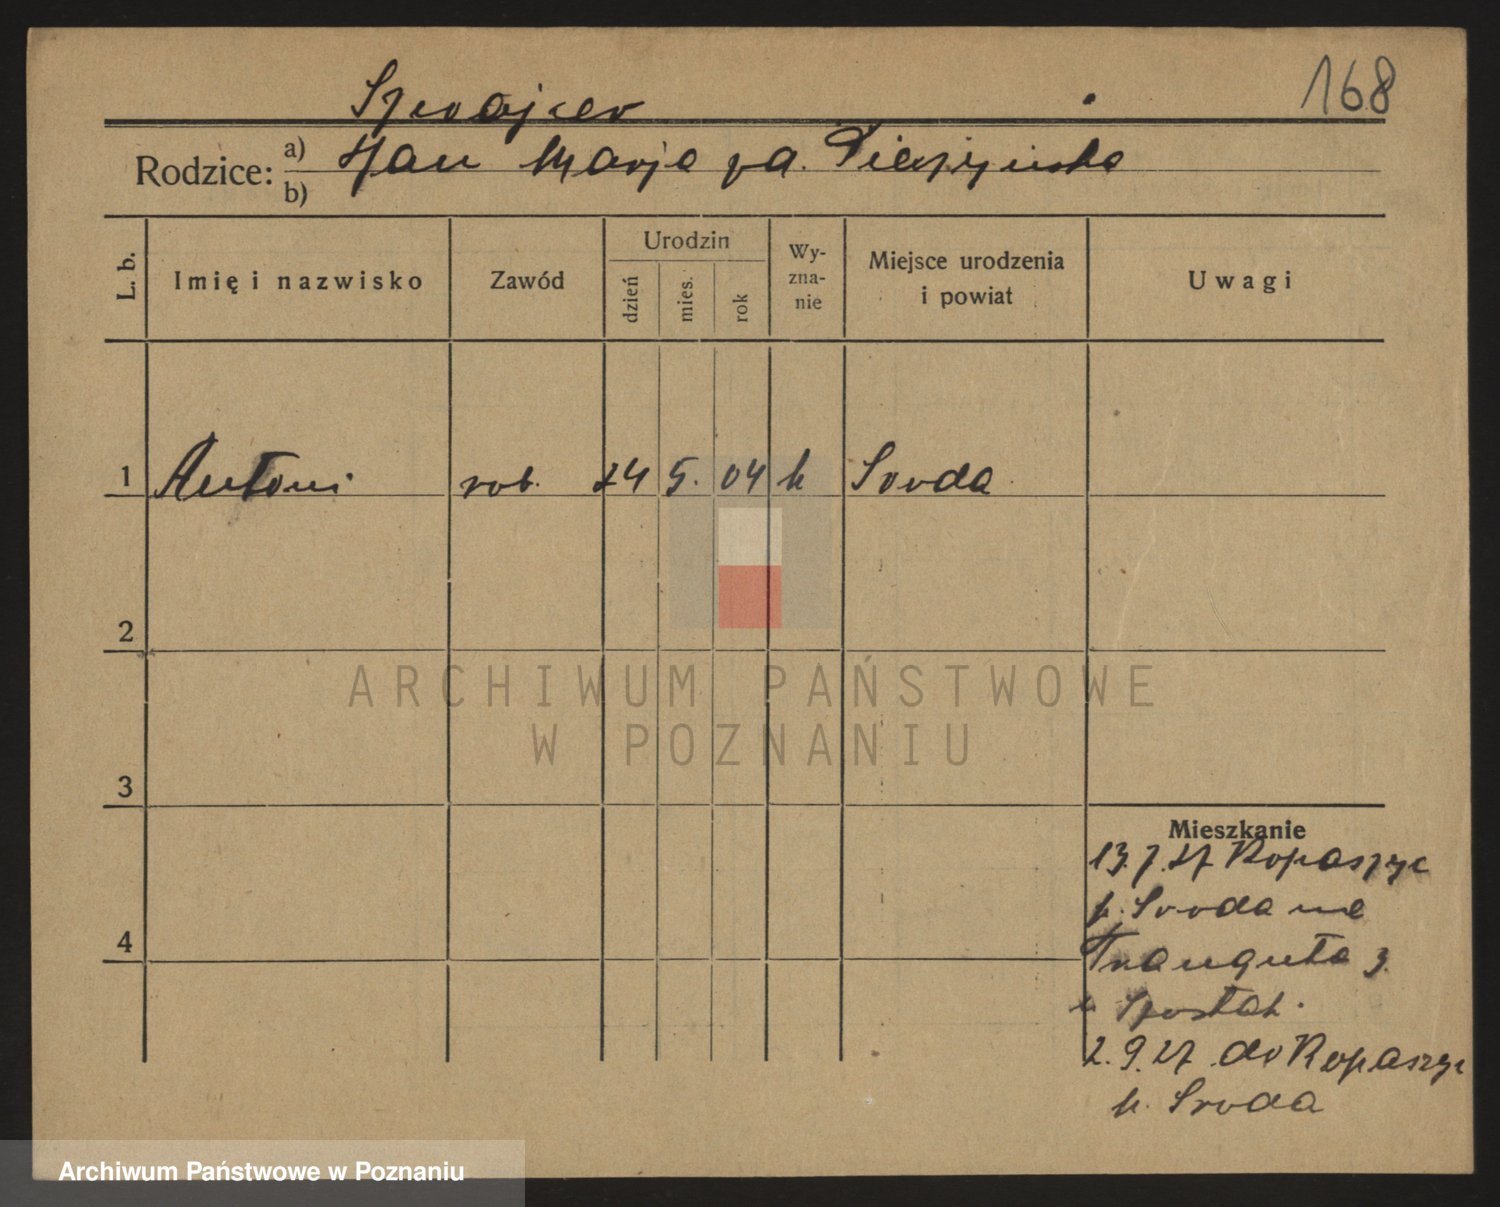 168
Szwajcer
Rodzice: a) Jan Marja
b)
L. b.
Imię i nazwisko
Zawód
Urodzin
dzień
mies.
rok
Wy-
zna-
nie
Miejsce urodzenia
i powiat
Uwagi
1 Antoni rob. 24 5. 04 k Sroda
2
3
4
ARCHIWUM PAŃSTWOWE
W POZNANIU
Mieszkanie
13.7.27
p. Sroda na
Trauguta 3.
2.9.27 do
p. Sroda
Archiwum Państwowe w Poznaniu